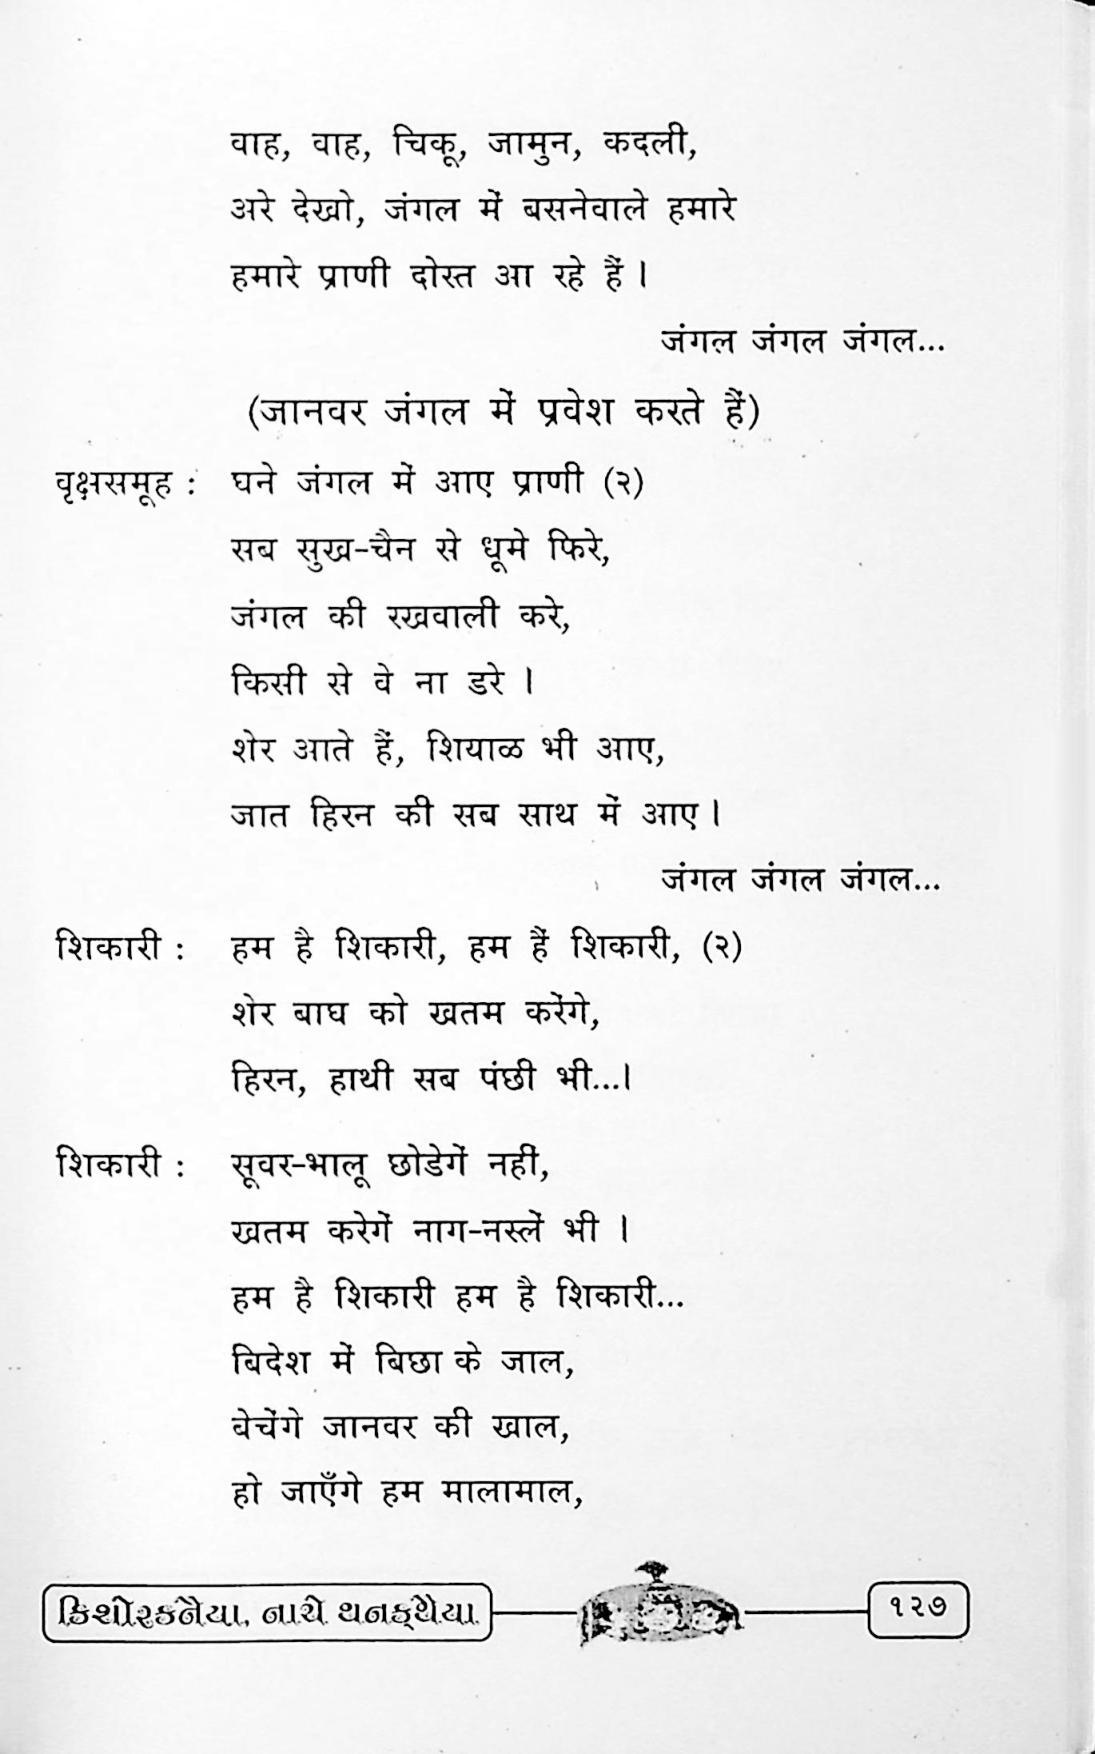 वाह, वाह, चिकू, जामुन, कदली,
अरे देखो, जंगल में बसनेवाले हमारे
हमारे प्राणी दोस्त आ रहे हैं ।
जंगल जंगल जंगल...
(जानवर जंगल में प्रवेश करते हैं)
वृक्षसमूह : घने जंगल में आए प्राणी (२)
सब सुख-चैन से धूमे फिरे,
जंगल की रखवाली करे,
किसी से वे ना डरे ।
शेर आते हैं, शियाळ भी आए,
जात हिरन की सब साथ में आए ।
जंगल जंगल जंगल...
शिकारी : हम है शिकारी, हम हैं शिकारी, (२)
शेर बाघ को खतम करेंगे,
हिरन, हाथी सब पंछी भी...।
शिकारी : सूवर-भालू छोडेगें नहीं,
खतम करेगें नाग-नस्लें भी ।
हम है शिकारी हम है शिकारी...
बिदेश में बिछा के जाल,
बेचेंगे जानवर की खाल,
हो जाएँगे हम मालामाल,
કિશોરકનૈયા, નાચે થનક્થૈયા ૧૨૭